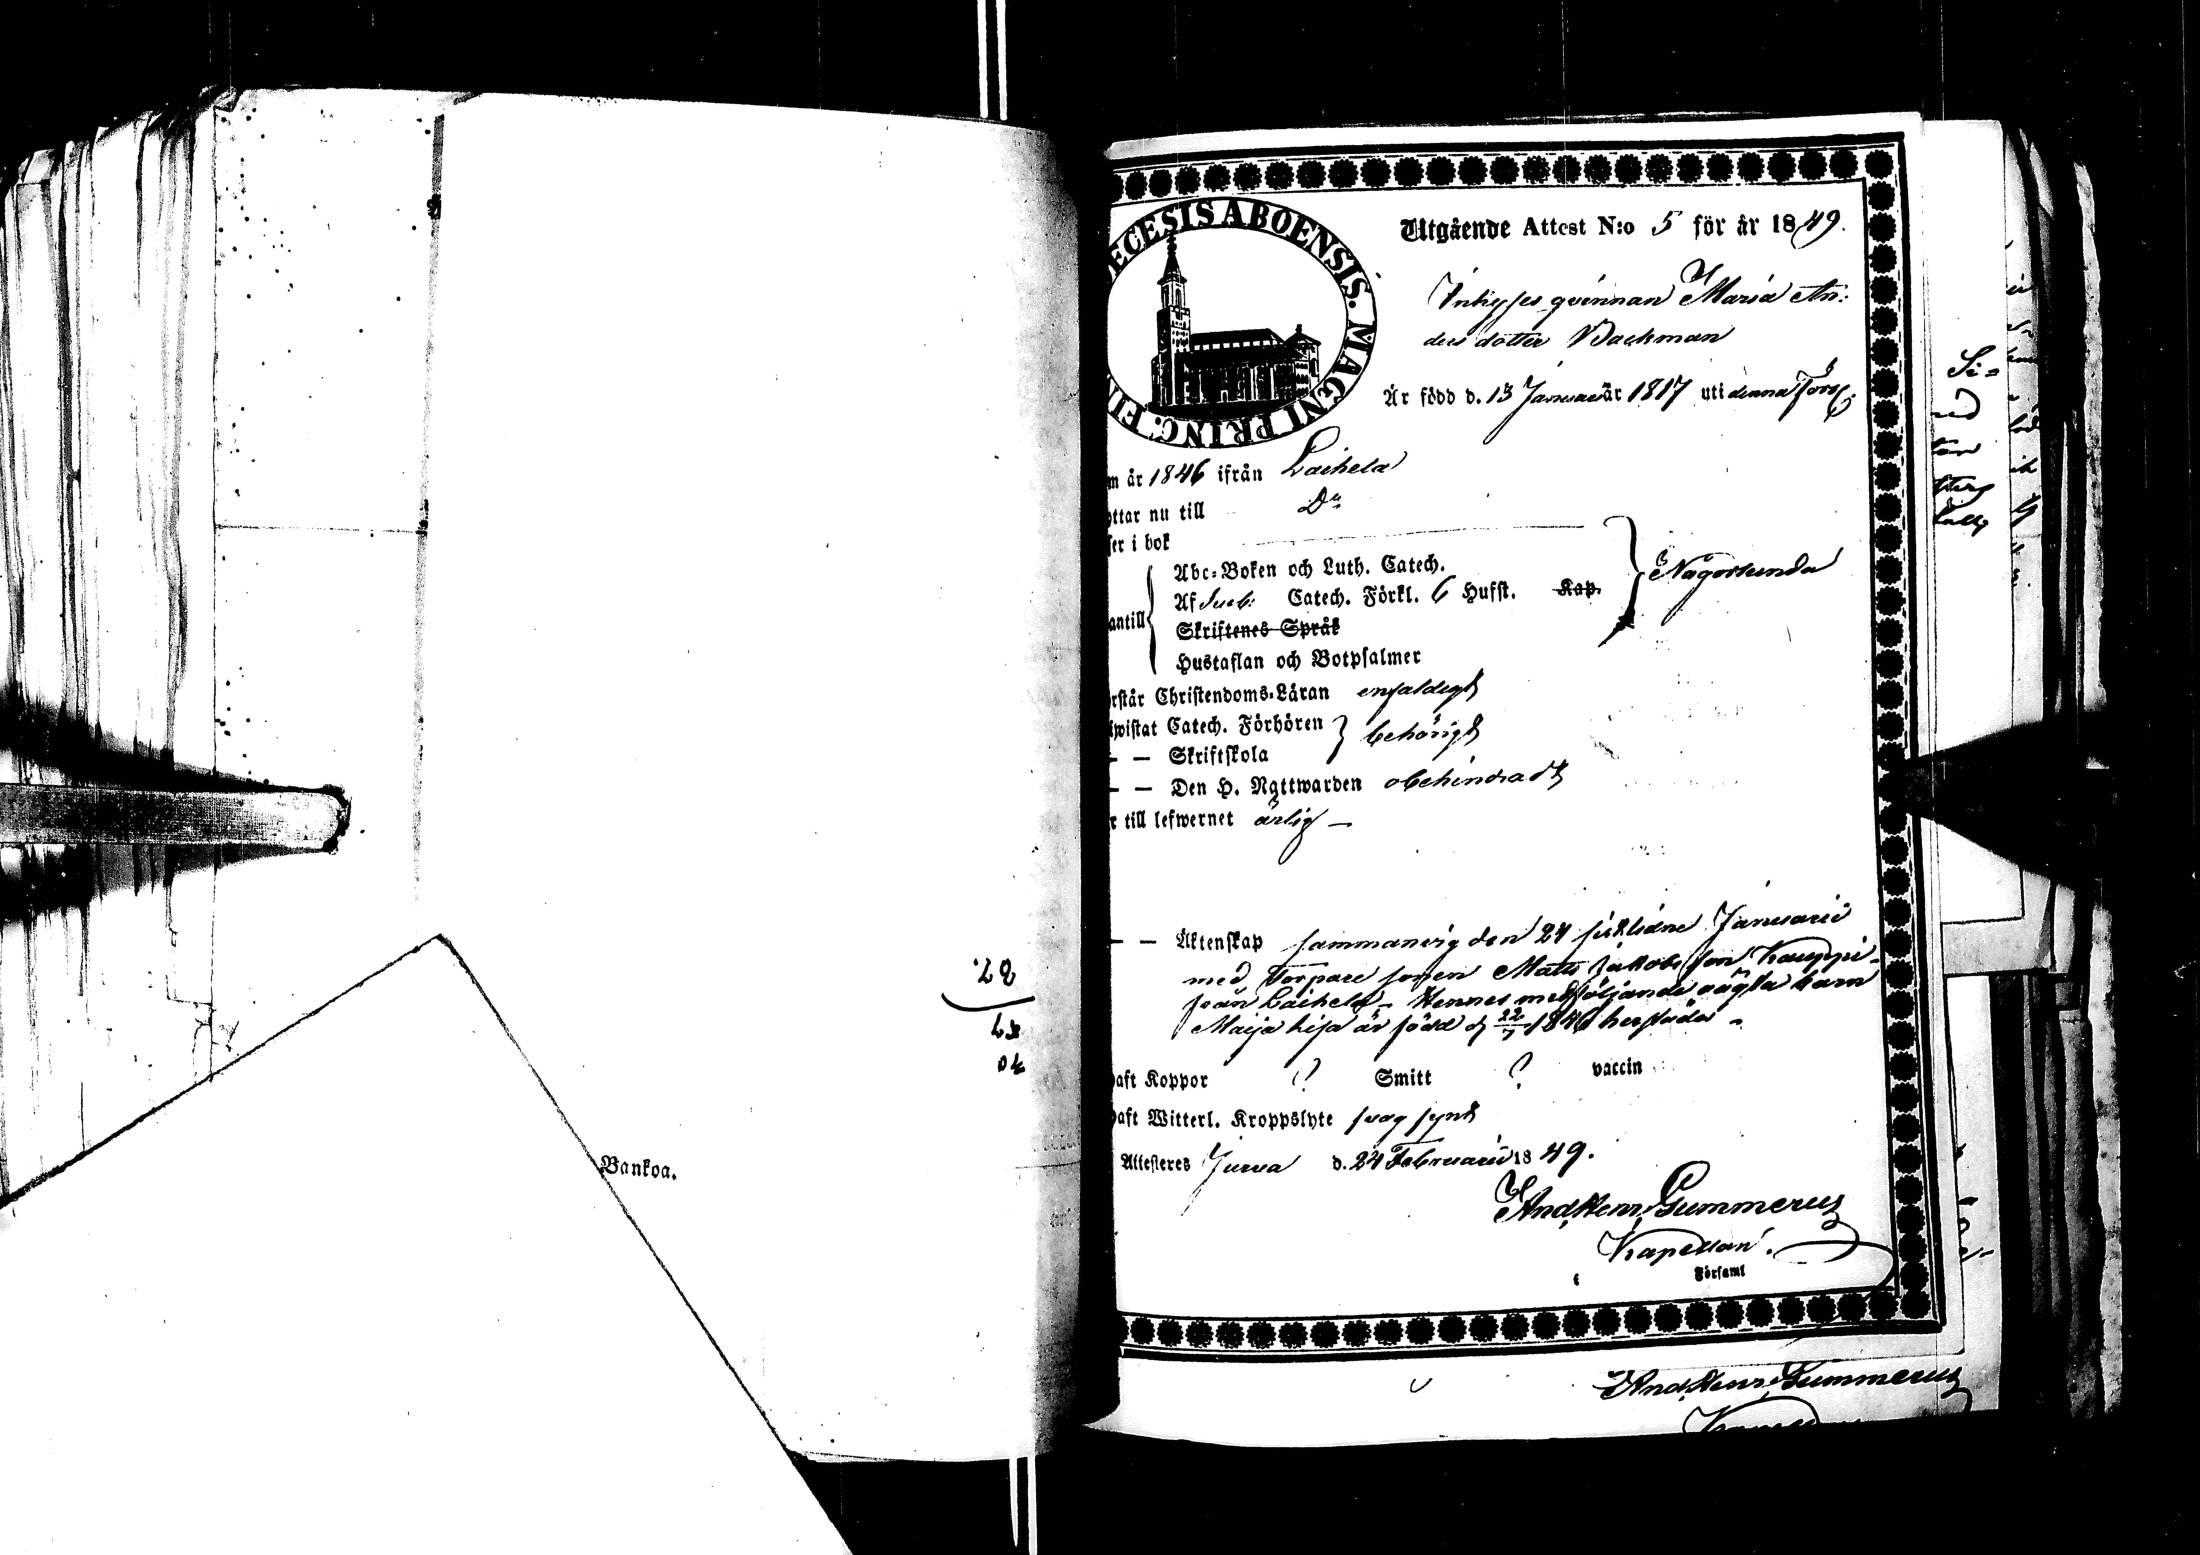 Bankoa.
27.
57
30
ECESIS ABOENSIS. MAGNI PRINC: FIN
Utgående Attest N:o 5 för år 1849.
Inhyses qvinnan Maria An:
ders dotter Backman
Är född d. 13 Januari år 1817 uti denna Förs:
m år 1846 ifrån Laihela
ottar nu till Do
ser i bok
Abc-Boken och Luth. Catech.
Af Sveb: Catech. Förkl. 6 Hufst. Kap.
Någorlunda
antill
Skriftenes Språk
Hustaflan och Botpsalmer
rstår Christendoms-Läran enfaldigt
wistat Catech. Förhören behörigt
— — Skriftskola
— — Den H. Nattwarden obehindradt
r till lefwernet ärlig —
— — Äktenskap sammanvig den 24 sistlidne Januarii
med Torpare sonen Matts Jakobs son Kauppi
från Laihela – Hennes medföljande oägta barn
Maija Lisa är född d 22/7 184 herstädes –
aft Koppor ? Smitt ? vaccin
aft Witterl. Kroppslyte svag synt
Attesteres Jurva d. 24 Februarii 1849.
And. Henr. Gummerus
Kapellan.
Församl
And. Henr. Gummerus